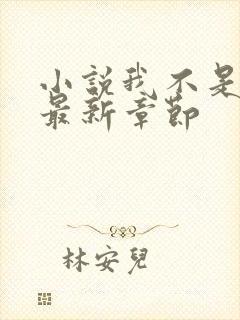 小説我不是
最新章節
林安兒